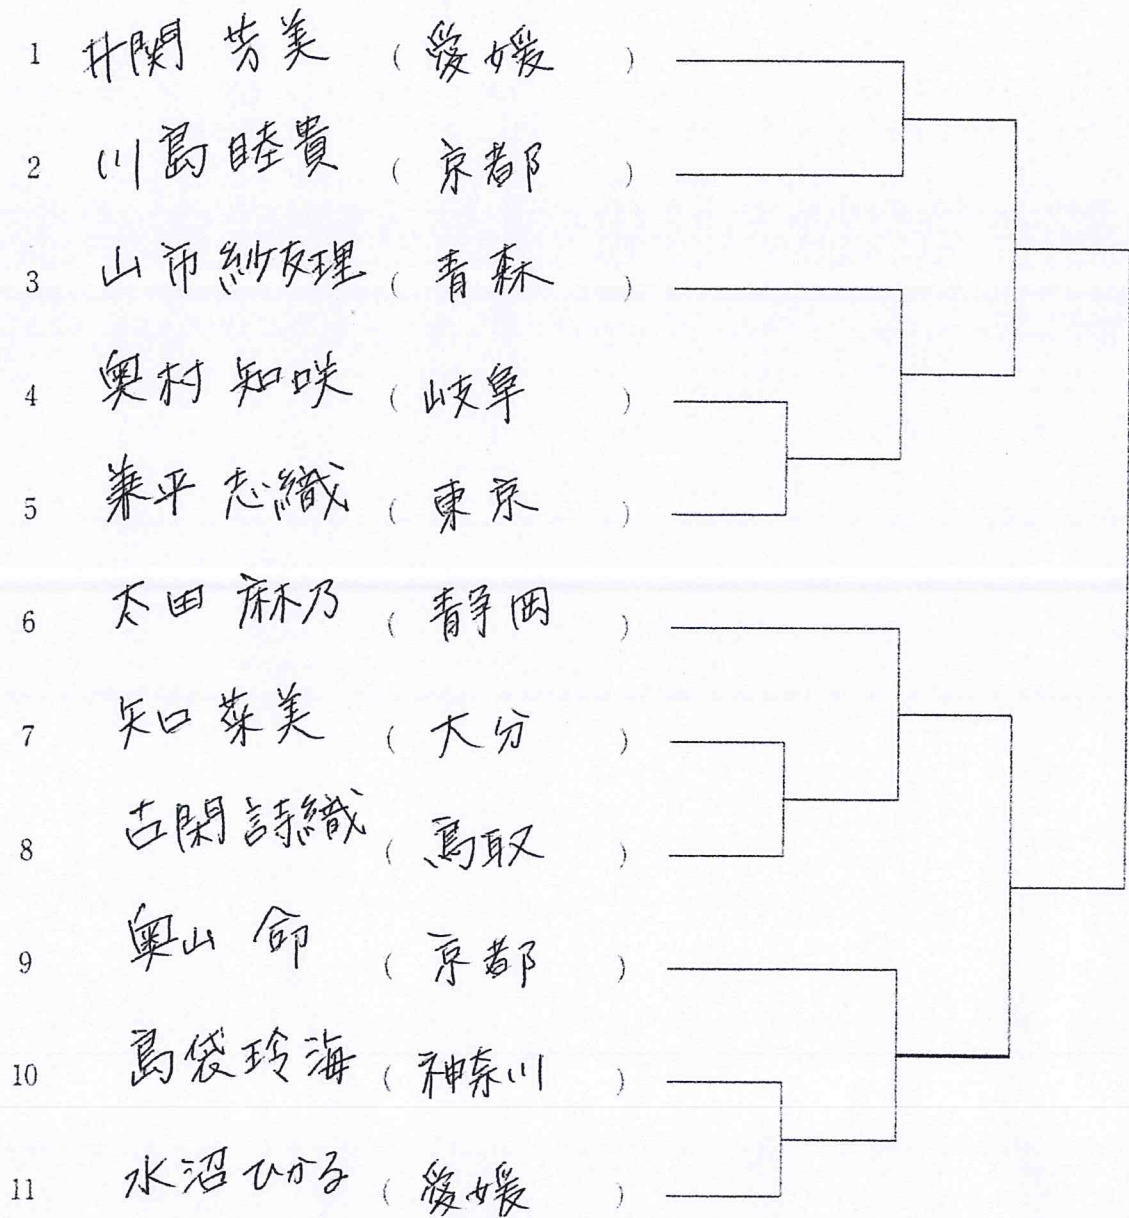 1 井関 芳美 (愛媛)
2 川島睦貴 (京都)
3 山市紗友理 (青森)
4 奥村 知咲 (岐阜)
5 兼平 志織 (東京)
6 太田 麻乃 (静岡)
7 矢口 菜美 (大分)
8 古閑詩織 (鳥取)
9 奥山 命 (京都)
10 島袋玲海 (神奈川)
11 水沼ひかる (愛媛)